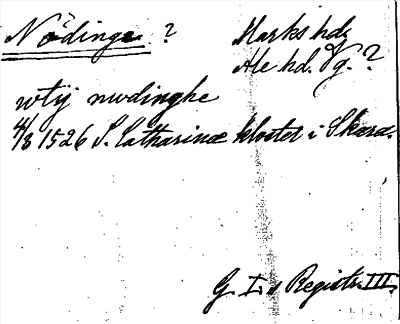 Nödinge ? Marks hd,
Ale hd. Vg. ?
wtij nwdinghe
4/8 1526 S. Catharinæ kloster i Skara.
G. I:s Registr. III.